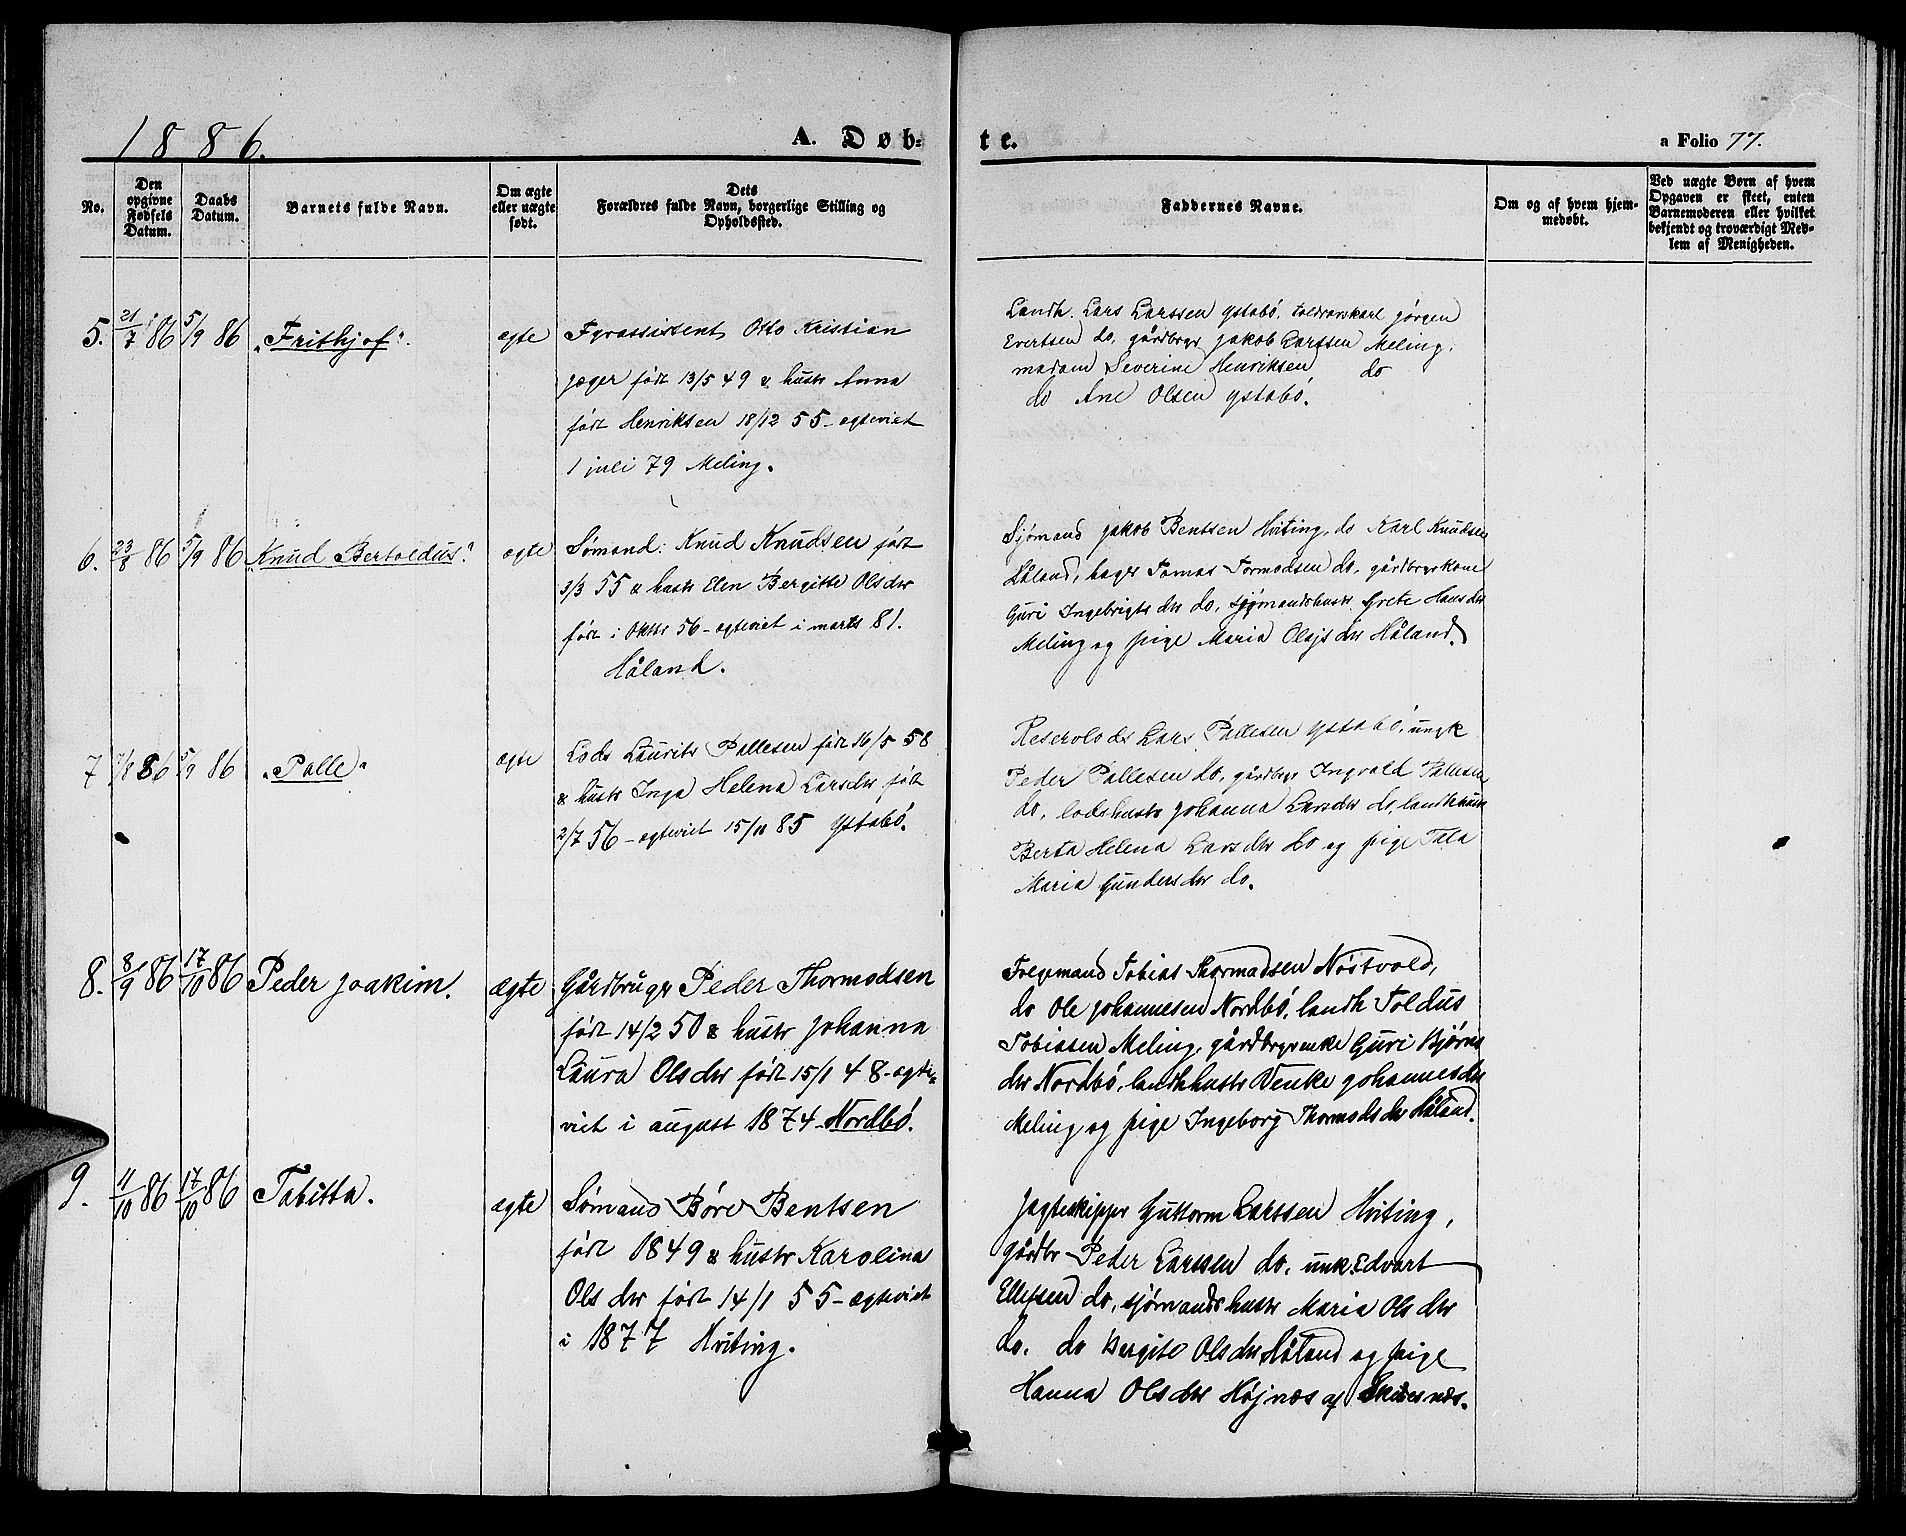 1886.
A. Døb-
te.
a Folio 77.
No.
Den opgivne Fødsels Datum.
Daabs Datum.
Barnets fulde Navn.
Om ægte eller uægte født.
Dets Forældres fulde Navn, borgerlige Stilling og Opholdssted.
Faddernes Navne.
Om og af hvem hjemmedøbt.
Ved uægte Børn af hvem Opgaven er skeet, enten Barnemoderen eller hvilket bekjendt og troværdigt Medlem af Menigheden.
5. 21/7 86 5/9 86 "Frithjof". ægte
Fyrassistent Otto Kristian
Jæger født 13/5 49 & hustr Anna
født Henriksen 18/12 55 - egteviet
1 juli 79 Meling.
Landh. Lars Larssen Ystabó, toldroerskarl Jörgen
Evertsen do, gårdbrgr Jakob Larssen Meling,
madam Severine Henriksen do
do Ane Olsen Ystabó.
6. 23/8 86 5/9 86 "Knud Bertoldus" ægte
Sømand: Knud Knudsen født
3/3 55 & hustr Elen Bergitte Olsdtr
født i Oktbr 56 - egteviet i marts 81.
Håland.
Sjömand Jakob Bentsen Hviting, do Karl Knudsen
Håland, Tomas Tormodsen do, gårdbrgrkone
Guri Ingebrigtsdtr do, sjömandshustr Grete Hansdtr
Meling og pige Maria Olajsdtr Håland.
7 7/8 86 5/9 86 "Palle" ægte
Lods Laurits Pallesen født 16/5 58
& hustr Inga Helena Larsdtr født
2/7 56 - egteviet 15/11 85 Ystabó.
Reservlods Lars Pallesen Ystabó, ungk
Peder Pallesen do, gårdbrgr Ingvald Pallesen
do, lodshustr Johanna Larsdtr do, landhhustr
Berta Helena Larsdtr do og pige Tala
Maria Gundersdtr do.
8. 8/9 86 17/10 86 Peder Joakim. ægte
Gårdbrugr Peder Thormodsen
født 14/2 50 & hustr Johanna
Laura Olsdtr født 15/1 48 - egte-
viet i august 1874 - Nordbó.
Folgemand Tobias Thormodsen Nöstvold,
do Ole Johannesen Nordbó, landh Toldus
Tobiassen Meling, gårdbrgrenke Guri Bjørns
dtr Nordbó, landhhustr Venke Johannesdtr
Meling og pige Ingeborg Thormodsdtr Håland.
9. 11/10 86 17/10 86 Tabitta. ægte
Sømand Bóre Bentsen
født 1849 & hustr Karolina
Olsdtr født 14/1 55 - egteviet
i 1877 Hviting.
Jagteskippr Guttorm Larssen Hviting,
gårdbr Peder Larssen do, ungk Edvart
Ellefsen do, sjömandshustr Maria Olsdtr
do. do Bergite Olsdtr Håland og pige
Hanna Olsdtr Højnæs af Skudesnæs.